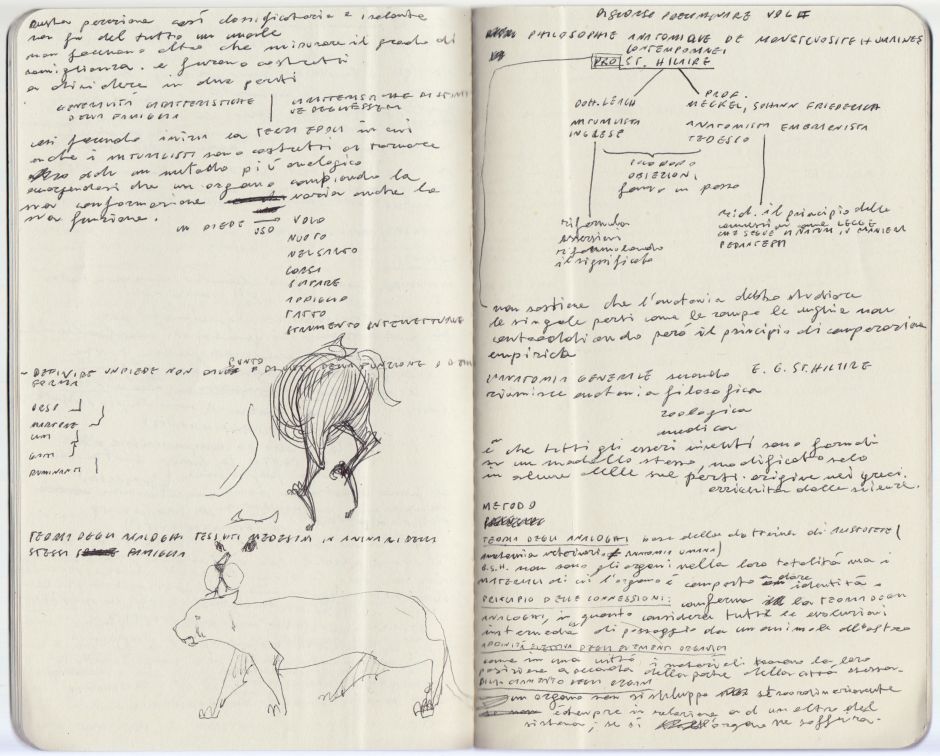 questa posizione così classificatoria e isolante
non fu del tutto un male
non facevano altro che misurare il grado di
somiglianza. e furono costretti
a dividere in due parti
GENERALITÀ CARATTERISTICHE
DELLA FAMIGLIA
CARATTERISTICHE DI
così facendo inizia la TERZA EPOCA in cui
anche i NATURALISTI sono costretti a tornare
ad un metodo più analogico
accorgendosi che un organo cambiando la
sua conformazione varia anche la
sua funzione.
UN PIEDE USO
VOLO
NUOTO
NEL SALTO
CORSA
SCAVARE
APPIGLIO
TATTO
STRUMENTO INTELLETTUALE
- DEFINIRE UN PIEDE NON DAL PUNTO DI VISTA DELLA FUNZIONE O DELLA
FORMA
ORSO
MARTORE
CANI
GATTI
RUMINANTI
TEORIA DEGLI ANALOGHI TESSUTI MEDESIMI IN ANIMALI DELLA
STESSA FAMIGLIA
DISCORSO PRELIMINARE VOL II
PHILOSOPHIE ANATOMIQUE DE MONSTRUOSITE HUMAINES
CONTEMPORANEI
PRO ST. HILAIRE
DOTT. LEACH
NATURALISTA
INGLESE
PROF.
MECKEL, JOHANN FRIEDERICH
ANATOMISTA EMBRIONISTA
TEDESCO
OBIEZIONI
fanno un passo
riformula
asserzioni
riformulando
il significato
rid. il principio delle
connessioni come LEGGE
CHE SEGUE LA NATURA IN MANIERA
PEDANTE
non sostiene che l'anatomia debba studiare
le singole parti come le zampe le unghie non
contraddicendo però il principio di comparazione
empirica
L'ANATOMIA GENERALE secondo E. G. ST. HILAIRE
riunisce anatomia filosofica
zoologica
medica
è che tutti gli esseri viventi sono formati
su un modello stesso, modificato solo
in alcune delle sue parti. origine nei greci.
arricchita dalle scienze.
METODO
TEORIA DEGLI ANALOGHI base della dottrina di ARISTOTELE (
anatomia veterinaria ≠ ANATOMIA UMANA)
G.S.H. non sono gli organi nella loro totalità ma i
MATERIALI di cui l'organo è composto a dare identità.
PRINCIPIO DELLE CONNESSIONI: conferma la TEORIA DEGLI
ANALOGHI, in quanto considera tutte le evoluzioni
intermedie di passaggio da un animale all'altro
AFFINITÀ ELETTIVA DEGLI ELEMENTI ORGANICI
come in una città i materiali trovano la loro
posizione a seconda della parte della città
BILANCIAMENTO DEGLI ORGANI
un organo non si sviluppa straordinariamente
è sempre in relazione ad un altro del
sistema; se sì l'organo ne soffrirà.